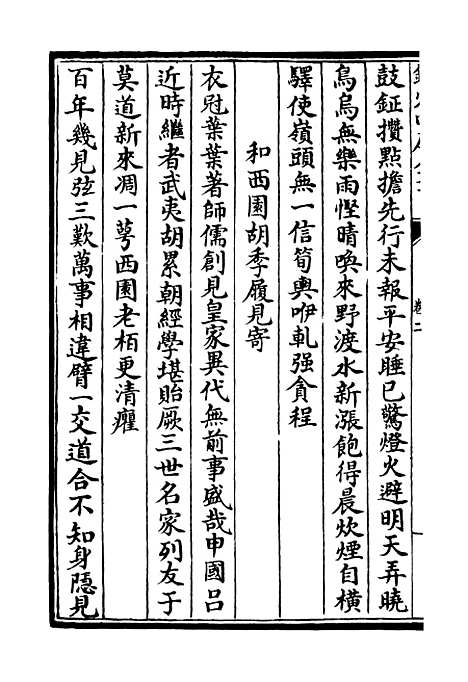 鼓鉦攢點擔先行未報平安睡已驚燈火避明天弄曉
鳥烏無樂雨慳晴喚來野渡水新漲飽得晨炊煙自橫
驛使嶺頭無一信筍輿咿軋强貪程
和西園胡季履見寄
衣冠葉葉著師儒創見皇家異代無前事盛哉申國呂
近時繼者武夷胡累朝經學堪貽厥三世名家列友于
莫道新來凋一萼西園老栢更清癯
百年幾見弦三歎萬事相違臂一交道合不知身隱見